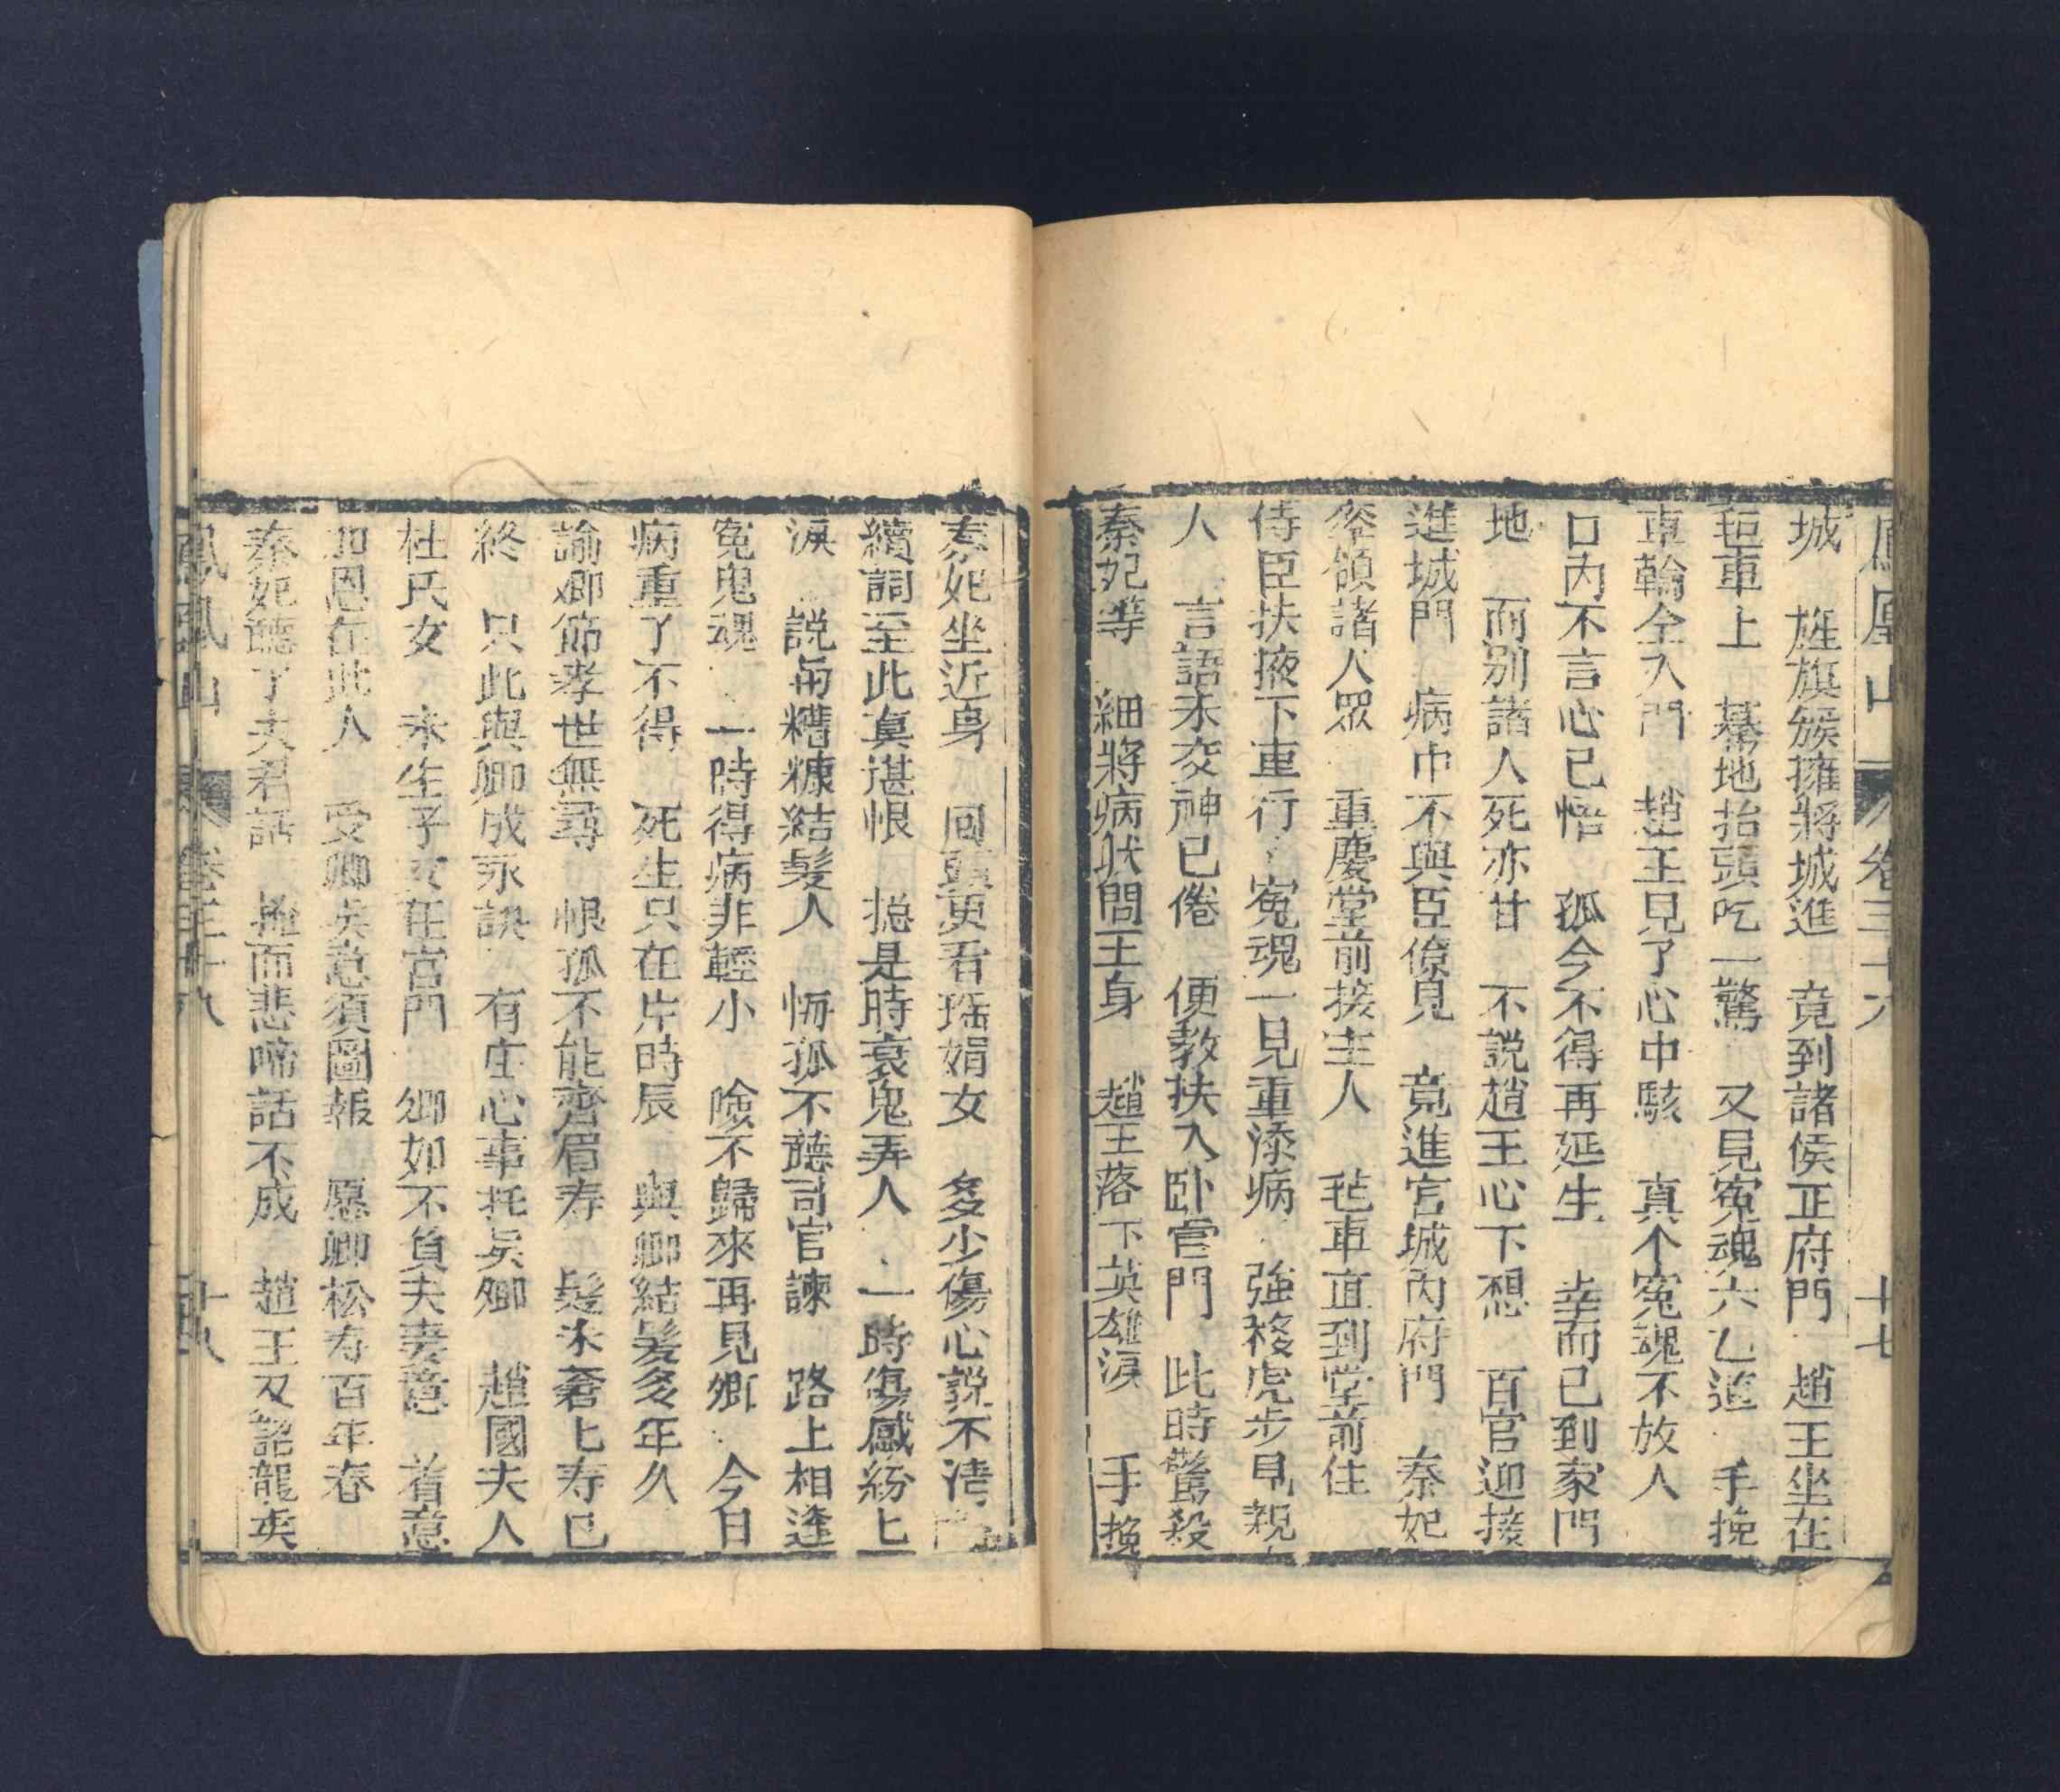 鳳凰山 卷三十六 十七
城 旌旗簇擁將城進 竟到諸侯正府門 趙王坐在
毡車上 驀地抬頭吃一驚 又見寃魂六乙追 手挽
車輪全入門 趙王見了心中駭 真个寃魂不放人
口內不言心已悟 孤今不得再延生 幸而已到家門
地 而別諸人死亦甘 不説趙王心下想 百官迎接
進城門 病中不與臣僚見 竟進宮城內府門 秦妃
率領諸人眾 重慶堂前接主人 毡車直到堂前住
侍臣扶掖下車行 寃魂一見重添病 強移虎步見親
人 言語未交神已倦 便教扶入卧宮門 此時驚殺
秦妃等 細將病狀問王身 趙王落下英雄淚 手挽
秦妃坐近身 回頭更看瑶娟女 多少傷心說不清
續詞至此真堪恨 揔是時衰鬼弄人 一時傷感紛匕
淚 説甫糟糠結髮人 悔孤不聽司官諫 路上相逢
寃鬼魂 一時得病非輕小 險不歸來再見卿 今日
病重了不得 死生只在片時辰 與卿結髮多年久
諭卿節孝世無尋 恨孤不能齊眉寿 髮未蒼匕寿已
終 只此與卿成永訣 有庄心事托吳卿 趙國夫人
杜氏女 未生子女在宮門 卿如不負夫妻意 着意
加恩在此人 受卿吳意須圖報 愿卿松寿百年春
秦妃聽了夫君話 掩面悲啼話不成 趙王又詔龍吳
鳳凰山 卷三十六 十八